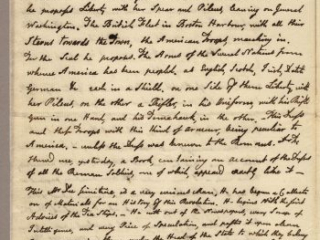 he proposes Liberty with her Spear and Pileus, leaning on General
Washington. The British Fleet in Boston Harbour, with all their
Sterns towards the Town, the American Troops, marching in.
For the Seal he proposes. The Arms of the several Nations from
whence America has been peopled, as English, Scotch, Irish, Dutch
German &c. each in a Shield. on one side of them Liberty, with
her Pileus, on the other a Rifler, in his Uniform, with his Rifle
Gun in one Hand, and his Tomahawk, in the other. This Dress
and these Troops with this Kind of Armour, being peculiar to
America, unless the Dress was known to the Romans. Dr
shewed me, yesterday, a Book, containing an Account of the Dresses
of all the Roman Soldiers, one of which, appeared exactly like it.
This Mr. Du simitiere, is a very curious Man. He has begun a Collection
of Materials for an History of this Revolution. He begins with the first
Advices of the Tea Ships. He cutts out of the Newspapers, every Scrap of
Intelligence, and every Piece of Speculation, and
under the Head of the State to which they belong